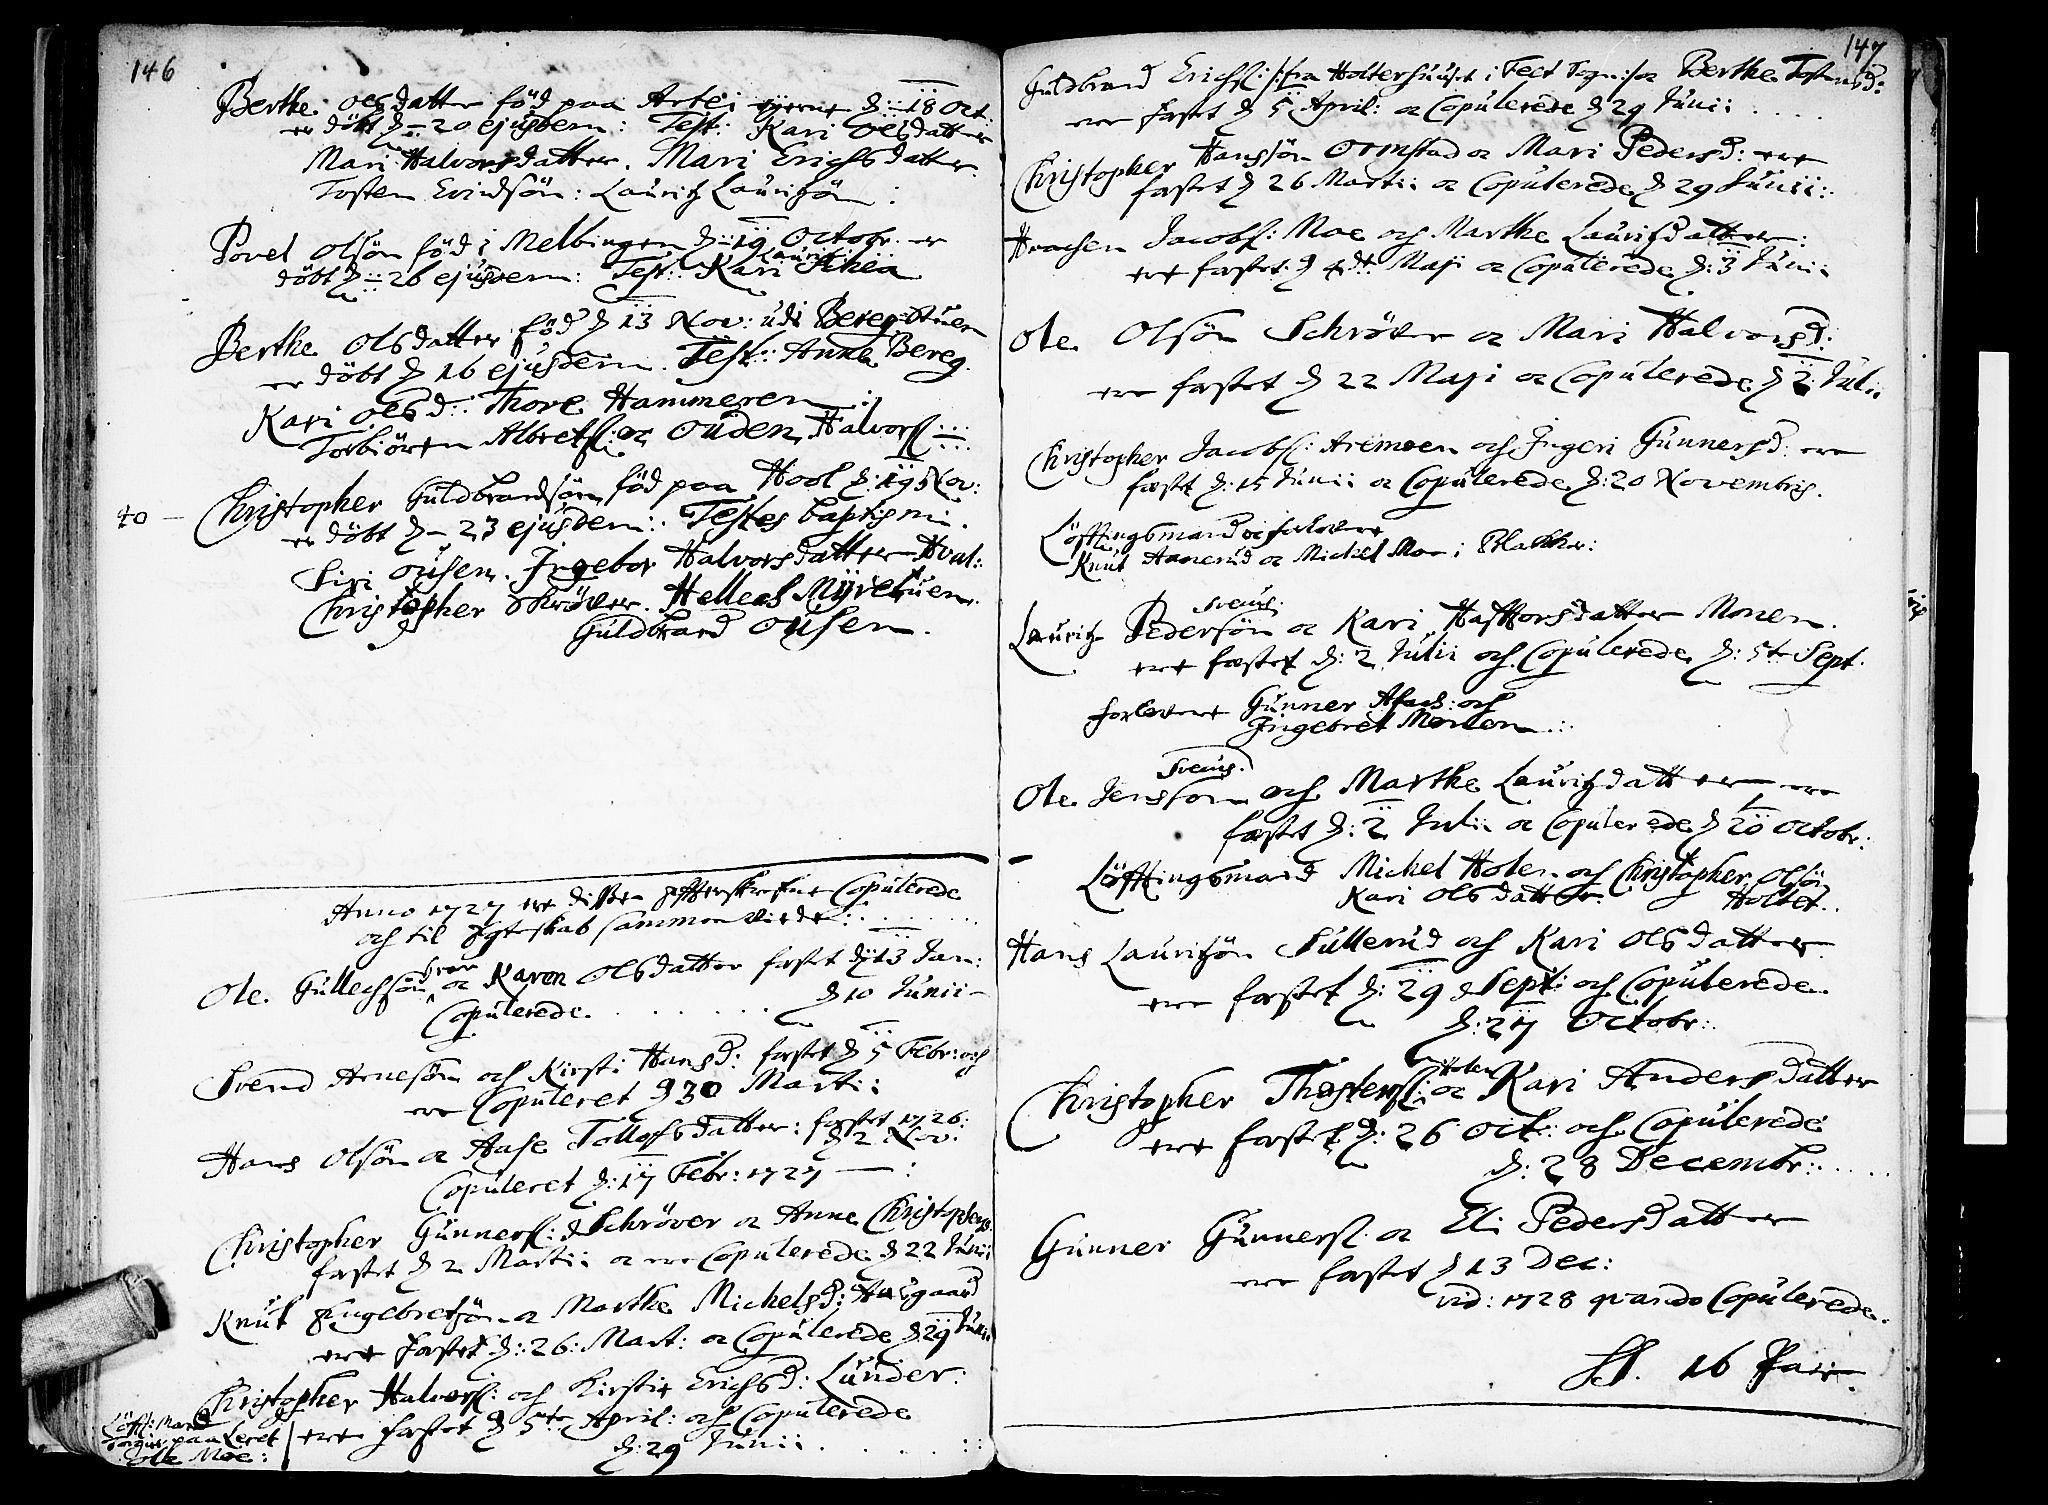 146
Berthe olsdatter föd paa Artei d: 18 Oct:
er döbt d 20 ejusdem: Test: Kari olsdatter
Mari Halvorsdatter. Mari Erichsdatter.
Tosten Evindsön: Lauritz Lauritzön:
Povel Olsön föd i Melbingen d: 19 Octobr: er
döbt d 26 ejusdem: Test: Kari Schea
Berthe Olsdatter föd d 13 Nov: udi Bereg-stuen
er döbt d 16 ejusdem. Test: Anne Bereg.
Kari Olsd: Thore Hammeren:
Torbiören Albretsl: oc Ouden Halvorsl:
40 — Christopher Guldbrandsön föd paa Hool d: 19 Nov:
er döbt d 23 ejusdem: Testes baptismi.
Siri ousen. Ingebor Halvorsdatter Hval:
Christopher Skröver. Hellech Myrestuen.
Guldbrand ousen.
Anno 1727 ere disse efterskrefne Copulerede
och til Egteskab sammenviede:
Ole Gullechsön oc Karen Olsdatter fæstet d 13 Jan:
Copulerede d 10 Junii
Svend Arnesön och Kirsti Hansd: fæstet d 5 Febr: och
ere Copuleret d 30 Marti:
Hans Olsön oc Aase Tollofsdatter: fæstet 1726:
d 2 Nov:
Copuleret d: 17 Febr: 1727 — :
Christopher Gunnersl: Schröver oc Anne Christophersd.
fæstet d 2 Martii oc ere Copulerede d 22 Junii
Knut Engebretsön oc Marthe Michelsd: Aasgaard
ere fæstet d: 26: Mart: oc Copulerede d: 29 Junii
Christopher Halvorsl: och Kirstie Erichsd: Lunder:
ere fæstet d 5te April: och Copulerede
d: 29 Junii
Löft: Mænd
paa Leret
Ole Moe:
147
Guldbrand Erichsl: /: fra Holterhuuset i Feet Sogn:/ oc Berthe Tostensd:
ere fæstet d 5 April: oc Copulerede d 29 Junii
Christopher Hanssön Ormstad oc Mari Pedersd: ere
fæstet d 26 Martii oc Copulerede d 29 Junii:
Jacobsl: Moe och Marthe Lauritzdatter:
ere fæstet: d 4de Maji oc Copulerede d: 3 Junii
Ole Olsön Schröver oc Mari Halvorsd:
ere fæstet d 22 Maji oc Copulerede d 2 Juli:
Christopher Jacobsl: Aremoen och Ingeri Gunnersd: ere
fæstet d: 15 Junii oc Copulerede d: 20 Novembris.
Löftingsmænd oc forlovere
Knut Hanerud oc Michel Moe i Blakker:
Lauritz Pedersön oc Kari Haftorsdatter Monen.
ere fæstet d: 2 Julii och Copulerede d: 5te Sept.
forlovere Gunner och
Ingebret Monen.
Ole Jensson och Marthe Lauritzdatter ere
fæstet d: 2 Julii oc Copulerede d 20 Octobr:
Löftingsmænd Michel Holen och Christopher Olsön
Kari Olsdatter. Holtet.
Hans Lauritzön Sullerud och Kari Olsdatter
ere fæstet d: 29 Sept: och Copulerede
d: 27 Octobr:
Christopher Thostensl: Holen oc Kari Andersdatter
ere fæstet d: 26 Oct: och Copulerede
d: 28 Decembr:
Gunner Gunnersl. oc Eli Pedersdatter
ere fæstet d 13 Dec:
vid: 1728 qvando Copulerede.
Sl. 16 Par.